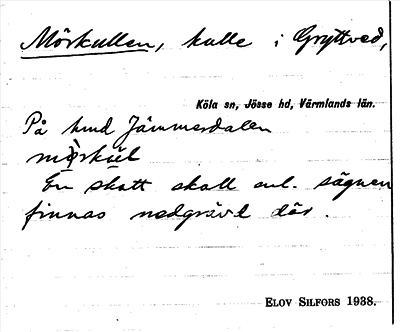 Mörkullen, kulle i Gryttved,
Köla sn, Jösse hd, Värmlands län.
På hmd Jämmerdalen
En skatt skall enl. sägnen
finnas nedgrävd där.
ELOV SILFORS 1938.